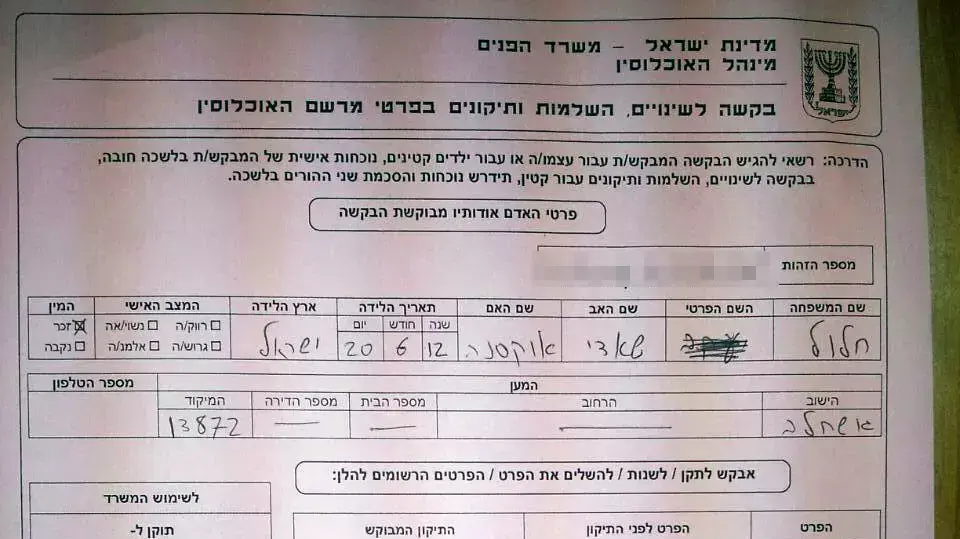 מדינת ישראל – משרד הפנים
מינהל האוכלוסין
ישראל
בקשה לשינויים, השלמות ותיקונים בפרטי מרשם האוכלוסין
הדרכה: רשאי להגיש הבקשה המבקש/ת עבור עצמו/ה או עבור ילדים קטינים, נוכחות אישית של המבקש/ת בלשכה חובה,
בבקשה לשינויים, השלמות ותיקונים עבור קטין, תידרש נוכחות והסכמת שני ההורים בלשכה.
פרטי האדם אודותיו מבוקשת הבקשה
מספר הזהות
שם המשפחה השם הפרטי שם האב שם האם תאריך הלידה ארץ הלידה המצב האישי המין
שנה חודש יום רווק/ה נשוי/אה זכר
חלול שאדי אוקסנה 12 6 20 ישראל גרוש/ה אלמנ/ה נקבה
המען מספר הטלפון
הישוב הרחוב מספר הבית מספר הדירה המיקוד
13872
אבקש לתקן / לשנות / להשלים את הפרט / הפרטים הרשומים להלן:
לשימוש המשרד
הפרט הפרט לפני התיקון התיקון המבוקש תוקן ל-